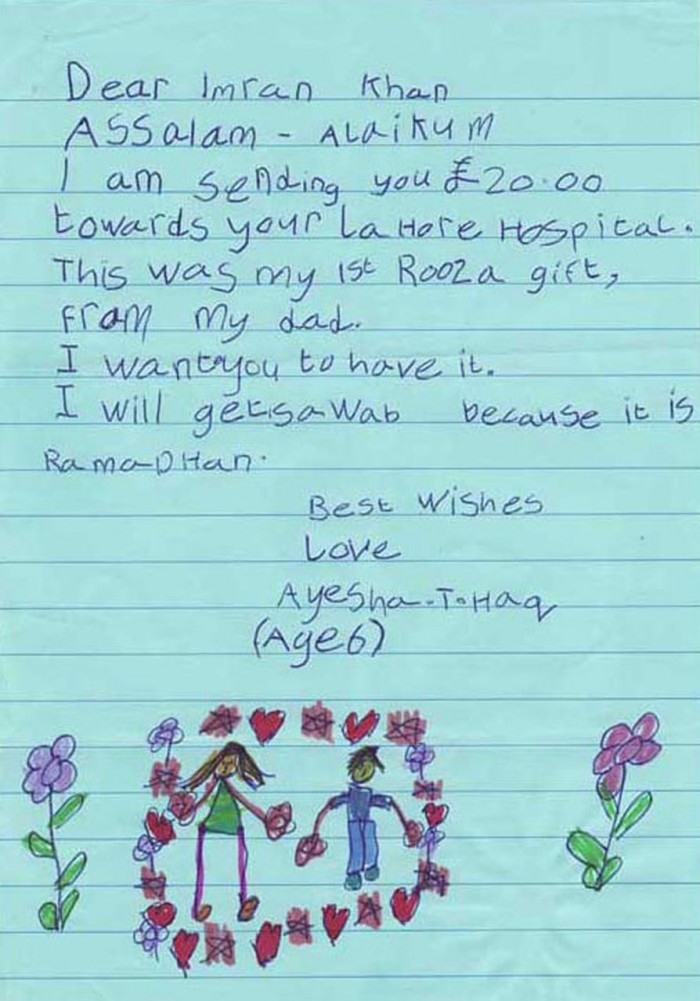 Dear Imran Khan
ASSalam - ALaikum
I am sending you £20.00
towards your LaHore Hospital.
This was my 1st Rooza gift,
from my dad.
I want you to have it.
I will get sawab because it is
RamaDHan.
Best Wishes
Love
Ayesha-T-Haq
(Age 6)